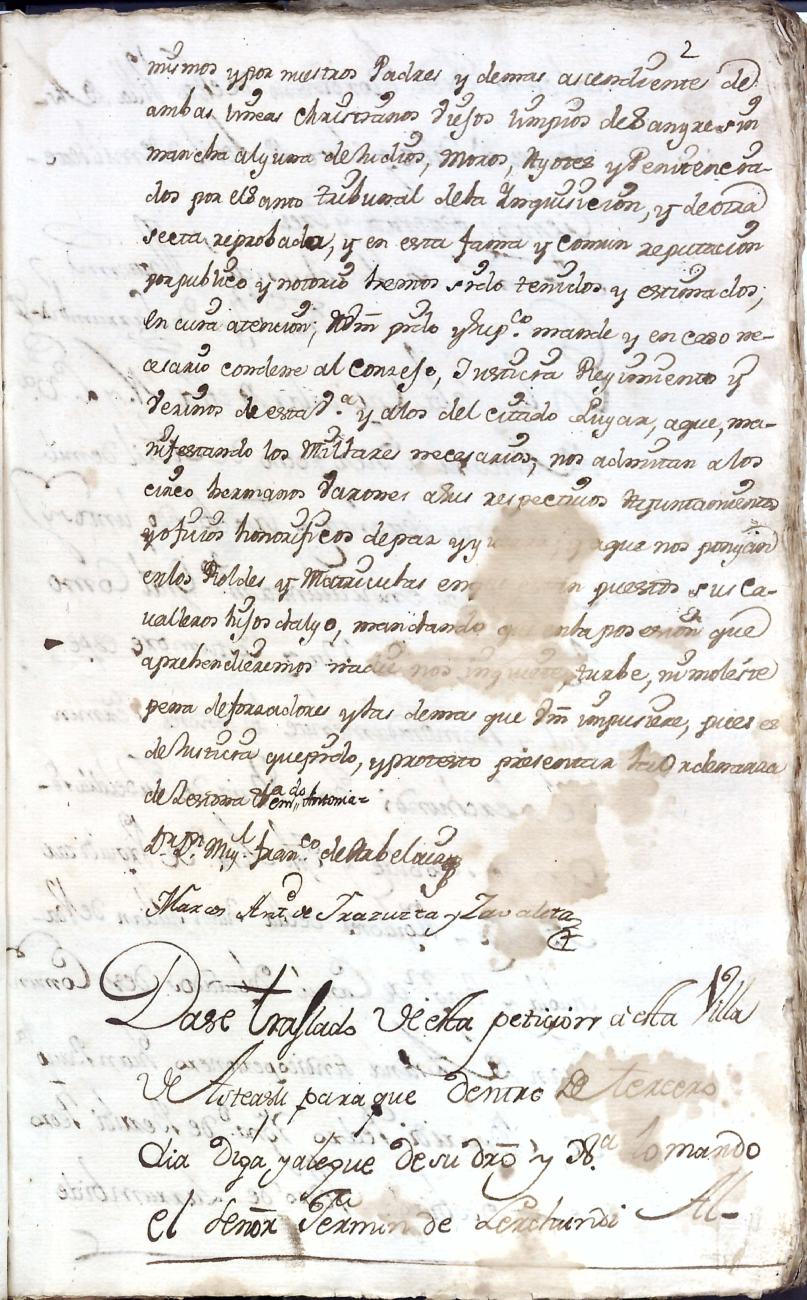 2
mismos y por nuestros Padres y demas ascendiente de
ambas lineas christianos viejos limpios de sangre sin
mancha alguna de Judios, Moros, Agotes y Penitencia-
dos por el Santo tribunal de la Inquisicion, y de otra
secta reprobada, y en esta fama y comun reputacion
por publico y notorio hemos sido tenidos y estimados,
en cuia atencion; A Vm pido y sup.co mande y en caso ne-
cesario condene al Conzejo, Justicia Regimiento y
Vezinos de esta V.a y a los del citado Lugar, a que, ma-
nifestando los Millares necesarios, nos admitan a los
cinco hermanos varones a sus respectivos Ayuntamientos
y oficios honorificos de paz y y a que nos pongan
en los Roldes y Matriculas en puestos sus Ca-
valleros hijos dalgo, mandando que en la posesion que
aprehendieremos nadie nos inquiete, turbe, ni moleste
pena de forzadores y las demas que Vm impusiere, pues es
de Justicia que pido, y protesto presentar la Ordenanza
de Lezona em.do Antonia=
Mig.l Fran.co de
Marcos Ant.o de Yrazuzta y Zavaleta
Dase traslado de esta peticion a esta Villa
de Asteasu para que dentro de tercero
dia diga, y alegue de su dro y lo mando
el Señor Fermin de Lerchundi Al-